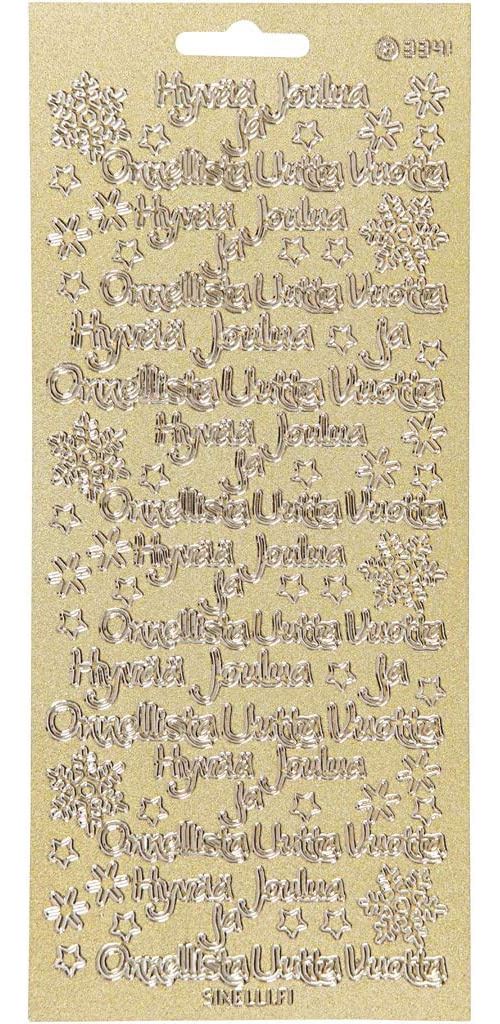 ® 3341
Hyvää Joulua
ja
Onnellista Uutta Vuotta
Hyvää Joulua
ja
Onnellista Uutta Vuotta
Hyvää Joulua ja
Onnellista Uutta Vuotta
Hyvää Joulua
ja
Onnellista Uutta Vuotta
Hyvää Joulua
ja
Onnellista Uutta Vuotta
Hyvää Joulua ja
Onnellista Uutta Vuotta
Hyvää Joulua
ja
Onnellista Uutta Vuotta
Hyvää Joulua
ja
Onnellista Uutta Vuotta
SINELLI.FI